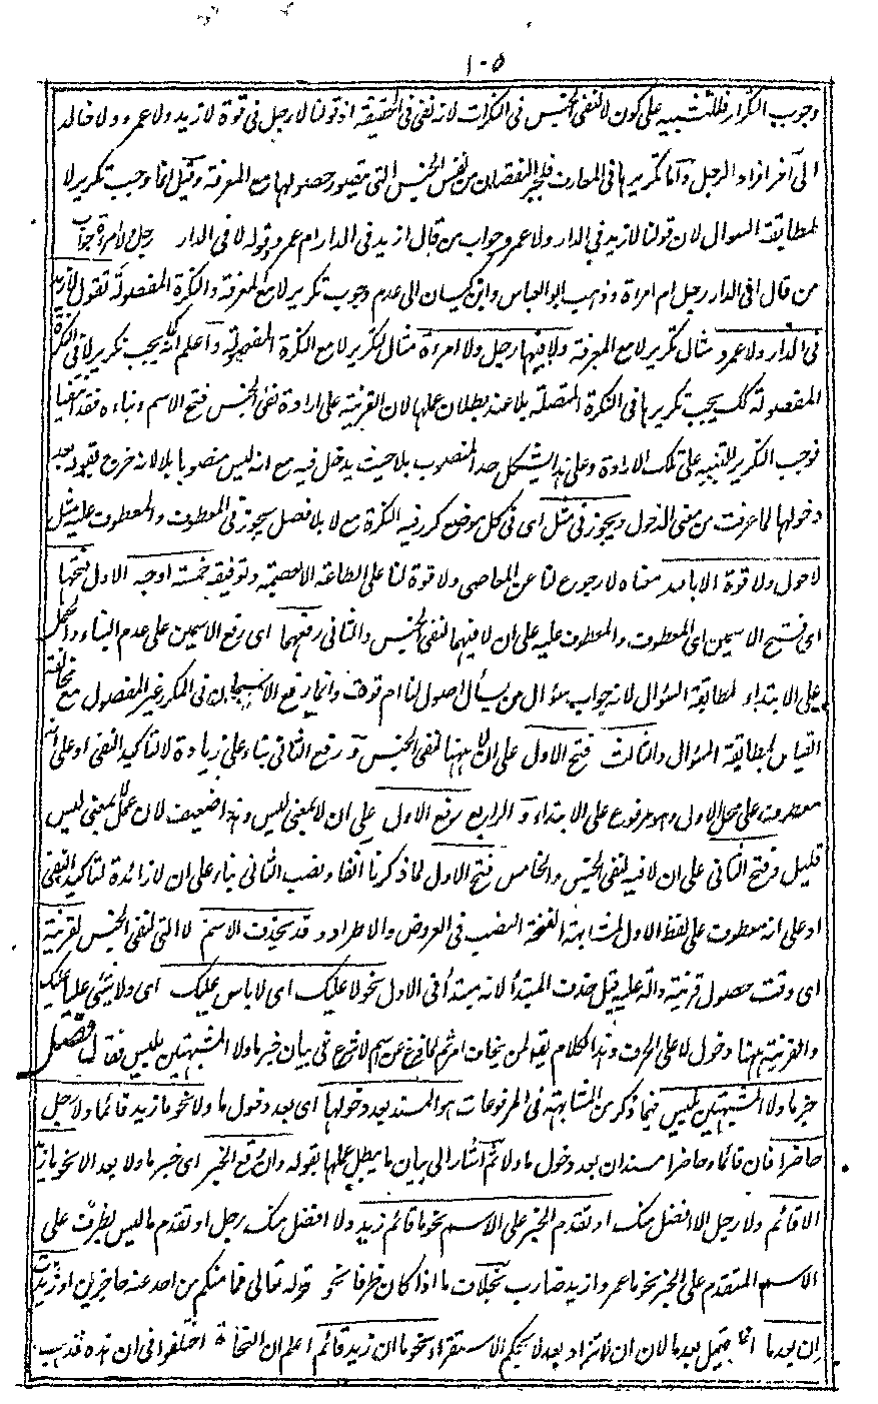 ١٠٥
وجوب التكرار فللتنبيه على كون لا لنفى الجنس فى النكرات لانه نفى فى الحقيقة اذ قولنا لا رجل فى قوة لا زيد ولا عمرو ولا خالد
الى آخر افراد الرجل وأما تكريرها فى المعارف فلجبر النقصان من نفى الجنس التى يتصور حصولها مع المعرفة وقيل انما وجب تكرير لا
لمطابقة السوال لان قولنا لا زيد فى الدار ولا عمرو جواب من قال ازيد فى الدار ام عمرو وقوله لا فى الدار رجل ولا امرأة جواب
من قال افى الدار رجل ام امراة وذهب ابو العباس وابن كيسان الى عدم وجوب تكرير لا مع المعرفة والنكرة المفصولة تقول لا زيد
فى الدار ولا عمرو مثال تكرير لا مع المعرفة ولا فيها رجل ولا امرءة مثال لتكرير لا مع النكرة المفصولة واعلم انه كما يجب تكرير لا فى النكرة
المفصولة كك يجب تكريرها فى النكرة المتصلة بلا عند بطلان عملها لان القرينة على ارادة نفى الجنس فتح الاسم وبناءه فقد انتفيا
فوجب التكرير للتنبيه على تلك الارادة وعلى هذا يشكل حد المنصوب بلا حيث يدخل فيه مع انه ليس منصوبا بلا لانه خرج بقوله بعد
دخولها لما عرفت من معنى الدخول ويجوز فى مثل اى فى كل موضع كرر فيه النكرة مع لا بلا فصل سيجوز فى المعطوف والمعطوف عليه مثل
لا حول ولا قوة الا بالله معناه لا رجوع لنا عن المعاصى ولا قوة لنا على الطاعة الا بعصمته وتوفيقه خمسة اوجه الاول فتحها
اى فتح الاسمين اى المعطوف والمعطوف عليه على ان لا فيهما لنفى الجنس والثانى رفعهما اى رفع الاسمين على عدم البناء والحمل
على الابتداء لمطابقة السؤال لانه جواب سؤال من يسأل احول لنا ام قوة وانما رفع الاسمان فى المكرر غير المفصول مع مخالفة
القياس لمطابقة السؤال والثالث فتح الاول على ان لا ههنا لنفى الجنس ورفع الثانى بناء على زيادة لا لتاكيد النفى او على انه
معطوف على محل الاول وهو مرفوع على الابتداء و الرابع رفع الاول على ان لا بمعنى ليس وهذا ضعيف لان عمل لا بمعنى ليس
قليل وفتح الثانى على ان لا فيه لنفى الجنس والخامس فتح الاول لما ذكرنا آنفا ونصب الثانى بناء على ان لا زائدة لتاكيد النفى
او على انه معطوف على لفظ الاول لمشابهة الفتحة النصب فى العروض والاطراد وقد يحذف الاسم لا التى لنفى الجنس لقرينة
اى وقت حصول قرينة دالة عليه قيل حذف المبتدأ لانه مبتدأ فى الاول نحو لا عليك اى لا باس عليك اى ولا شئ عليك
والقرينة ههنا دخول لا على الحرف وهذا الكلام يقولمن يخاف امرا ثم لما فرغ عن اسم لا شرع فى بيان خبر ما ولا المشبهتين بليس فقال فصل
خبر ما ولا المشبهتين بليس فيما ذكر من المشابهة فى المرفوعات هو المسند بعد دخولها اى بعد دخول ما ولا نحو ما زيد قائما ولا رجل
حاضرا فان قائما وحاضرا مسندان بعد دخول ما ولا ثم اشار الى بيان ما يبطل عملها بقوله وان وقع الخبر اى خبر ما ولا بعد الا نحو ما زيد
الا قائم ولا رجل الا افضل منك او تقدم الخبر على الاسم نحو ما قائم زيد ولا افضل منك رجل او تقدم ما ليس بظرف على
الاسم المتقدم على الخبر نحو ما عمرا زيد ضارب بخلاف ما اذا كان ظرفا نحو قوله تعالى فما منكم من احد عنه حاجزين او زيدت
إن بعد ما انما قيل بعد ما لان ان لا تزاد بعد لا بحكم الاستقراء نحو ما ان زيد قائم اعلم ان النحاة اختلفوا فى ان هذه فذهب